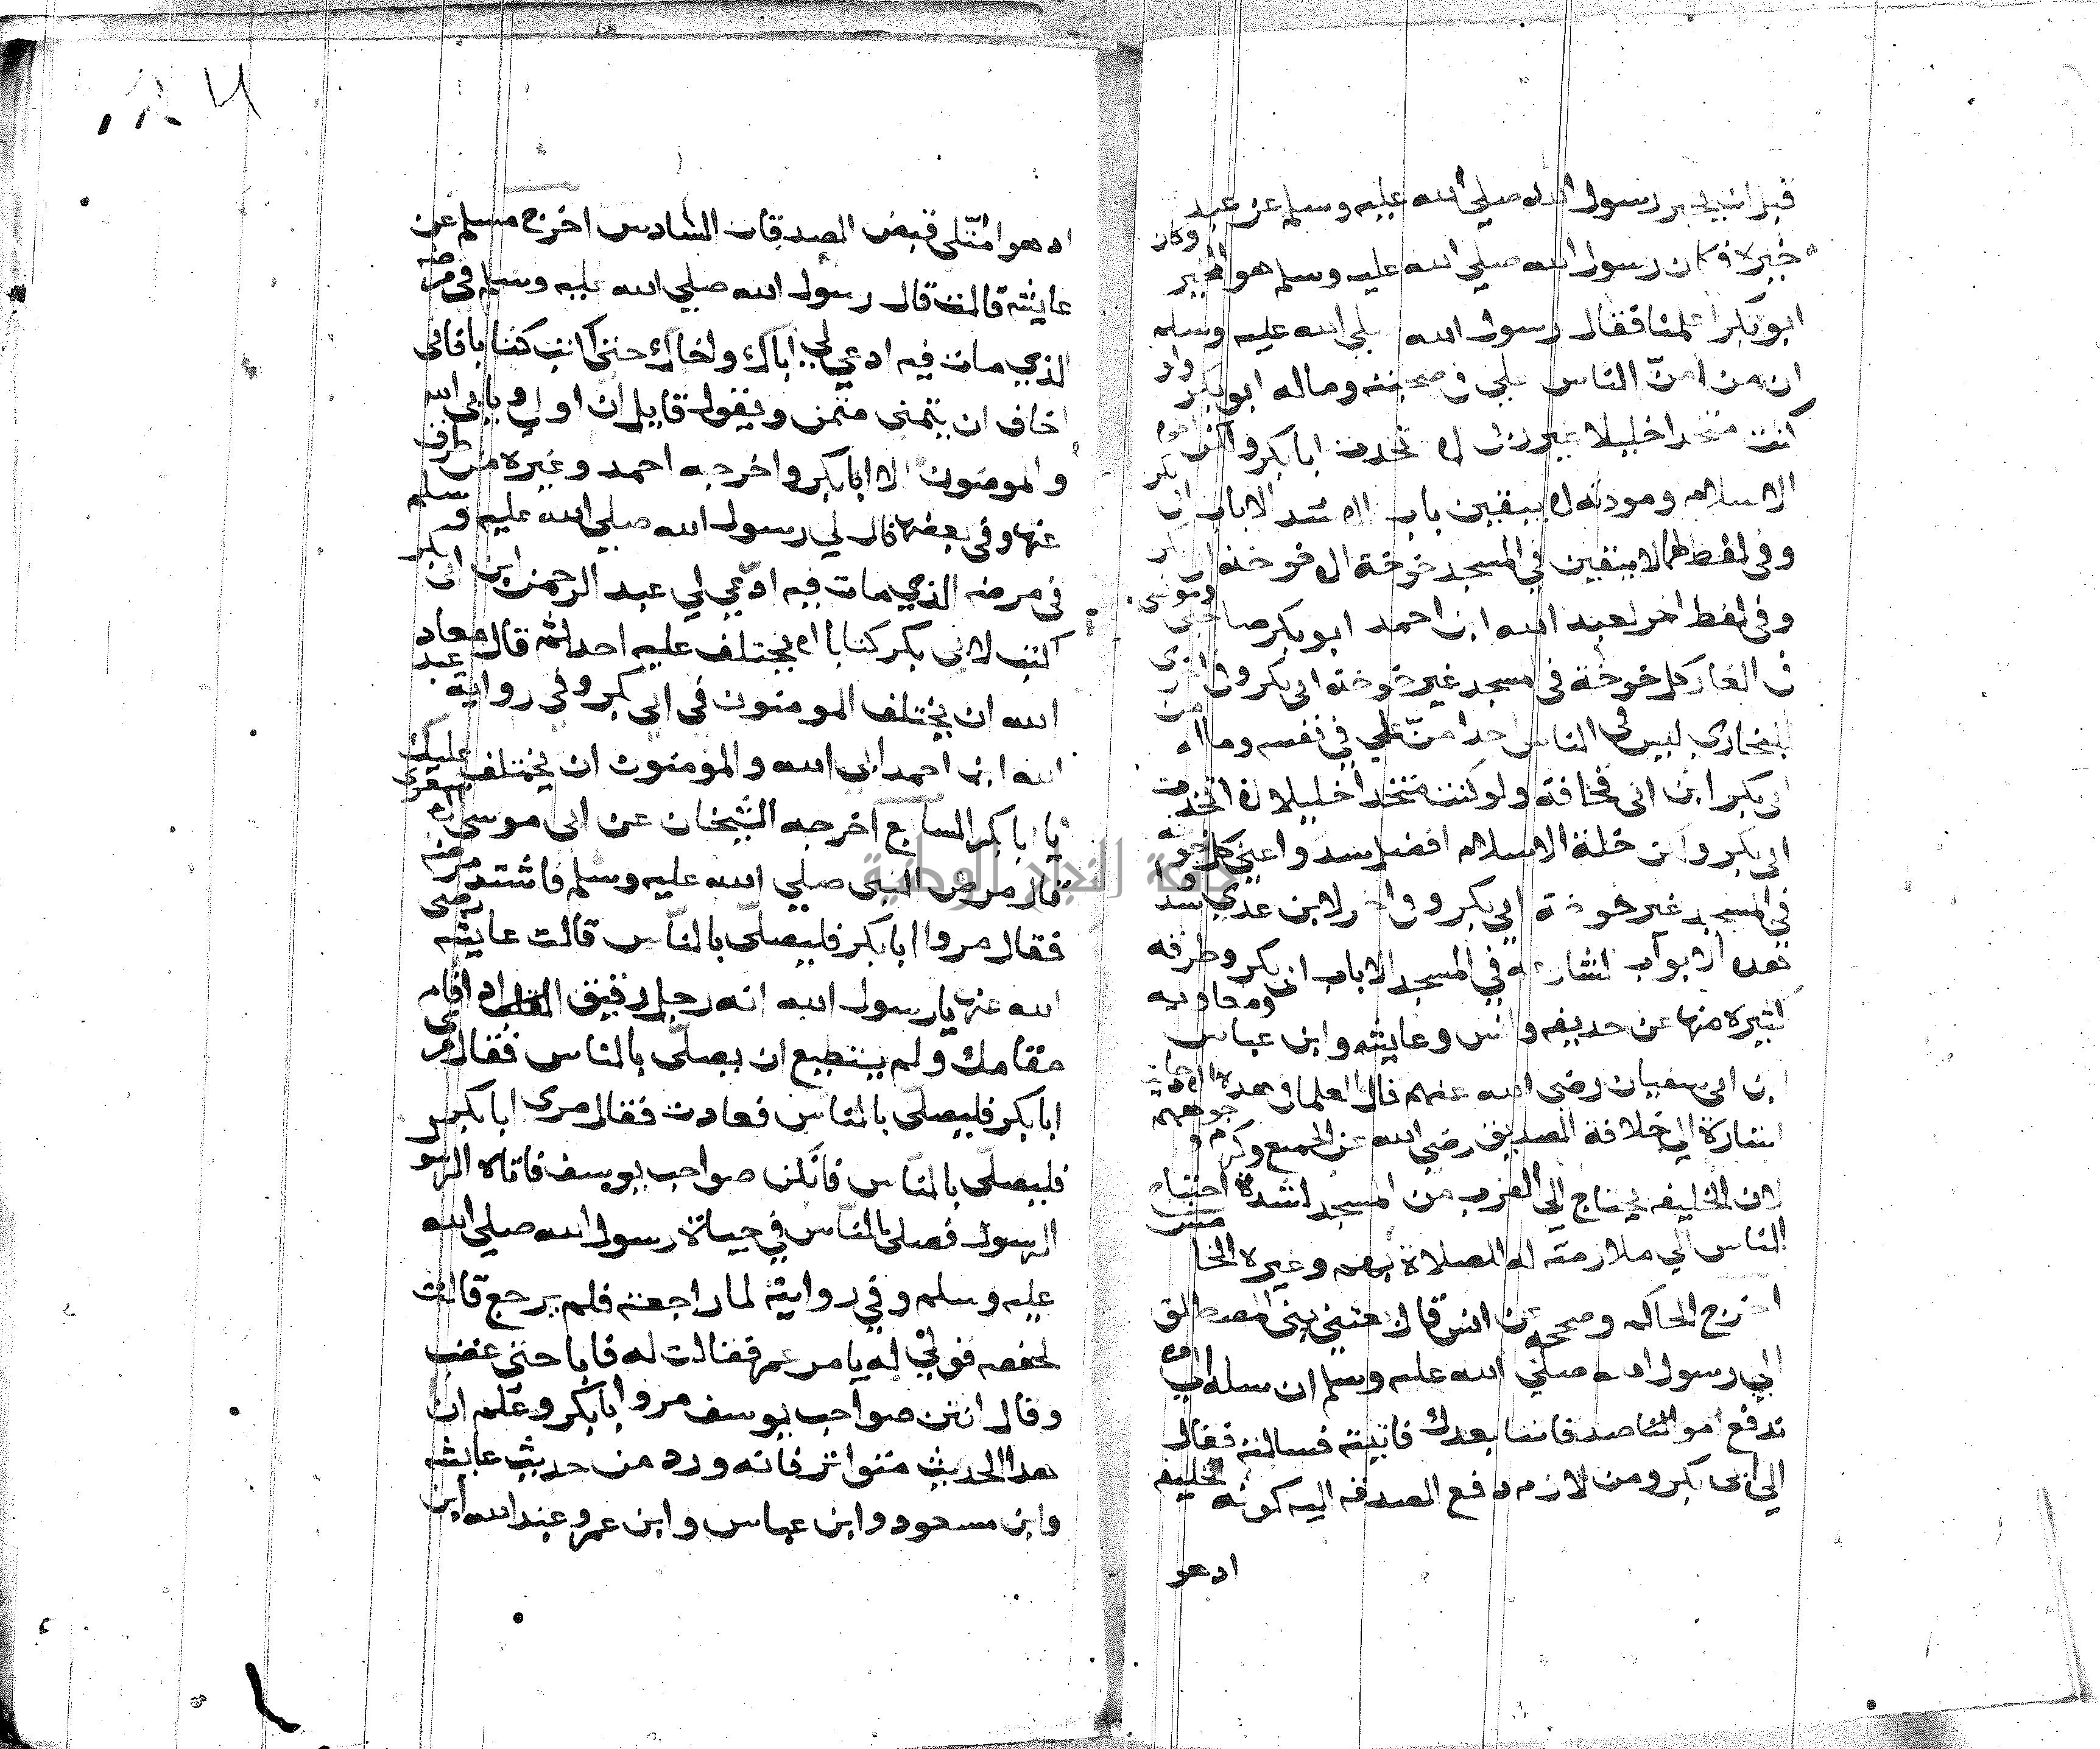 رسول الله صلي الله عليه وسلم عن عبد
خيره فكان رسول الله صلي الله عليه وسلم هو المخير وكان
ابو بكر اعلمنا فقال رسول الله صلي الله عليه وسلم
ان من امنّ الناس علي في صحبته وماله ابو بكر ولو
كنت متخدا خليلا غير ربي لا تخدت ابا بكر ولكن اخوه
الاسلام ومودته لا يبقين باب الا سد الا باب ابي بكر
وفي لفظ لهما لا يبقين في المسجد خوخة الا خوخة ابي بكر
وفي لفظ اخر لعبد الله ابن احمد ابو بكر صاحبي ومونسي
في الغار كل خوخة في مسجد غير خوخة ابي بكر وفي اخري
للبخاري ليس في الناس احدا منّ علي في نفسه وماله من
ابي بكر ابن ابي قحافة ولو كنت متخدا خليلا لا تخدت
ابي بكر ولكن خلة الاسلام افضل سدوا عني كل خوخة
في المسجد غير خوخة ابي بكر وفي اخر لابن عدي سدوا
هده الابواب الشارعة في المسجد الا باب ابي بكر وطرقه
كثيره منها عن حديفه وانس وعايشه وابن عباس ومعاويه
ابن ابي سفيان رضي الله عنهم قال العلما في هده الاحاديث
اشارة الي خلافة الصديق رضي الله عن الجميع وكرم وجوههم
لان الخليفه يحتاج الي القرب من المسجد لشدة احتياج
الناس الي ملازمته له للصلاة بهم وغيره الخامس
اخرج الحاكم وصححه عن انس قال بعثني بني المصطلق
الي رسول الله صلي الله عليه وسلم ان سله الي من
ندفع اموالنا صدقاتنا بعدك فاتيته فسالته فقال
الي ابي بكر ومن لازم دفع الصدقه اليه كونه خليفه
ادهو
اد هو امتّلي قبض الصدقات السادس اخرج مسلم عن
عايشه قالت قال رسول الله صلي الله عليه وسلم في مرضه
الذي مات فيه ادعي لي اباك واخاك حتي اكتب كتابا فاني
اخاف ان يتمني متمن ويقول قايل ان اولي ويابي الله
والمومنون الا ابا بكر واخرجه احمد وغيره من طرق
عنها وفي بعضها قال لي رسول الله صلي الله عليه وسلم
في مرضه الذي مات فيه ادعي لي عبد الرحمن ابن ابي بكر
اكتب لابي بكر كتابا لا يختلف عليه احد ثم قال معاد
الله ان يختلف المومنون في ابي بكر وفي رواية عبد
الله ابن احمد ابي الله والمومنون ان يختلف عليك
يا ابا بكر السابع اخرجه الشيخان عن ابي موسي الاشعري
قال مرض النبي صلي الله عليه وسلم فاشتد مرضه
فقال مروا ابا بكر فليصلّي بالنّاس قالت عايشه رضي
الله عنها يا رسول الله انه رجل رقيق القلب اد اقام
مقامك ولم يستطيع ان يصلّي بالناس فقال مري
ابا بكر فليصلّي بالناس فعادت فقال مري ابا بكر
فليصلّي بالناس فانّكن صواحب يوسف فاتاه الرسو
الرسول فصلي بالنّاس في حياة رسول الله صلي الله
عليه وسلم وفي رواية لما راجعته فلم يرجع قالت
لحفصه قولي له يامر عمر فقالت له فابا حتي غضب
وقال انتن صواحب يوسف مروا ابا بكر وعلم ان
هدا الحديث متواتر فانه ورد من حديث عايشه
وابن مسعود وابن عباس وابن عمر وعبد الله ابن
جامعة النجاح الوطنية